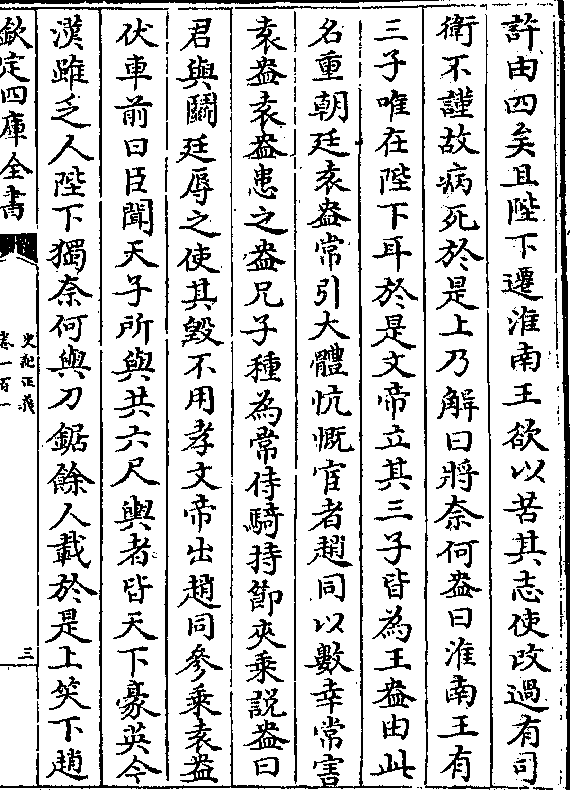 許由四矣且陛下遷淮南王欲以苦其志使改過有司
衛不謹故病死於是上乃解曰將奈何盎曰淮南王有
三子唯在陛下耳於是文帝立其三子皆為王盎由此
名重朝廷袁盎常引大體忼慨宦者趙同以數幸常害
袁盎袁盎患之盎兄子種為常侍騎持節夾乗説盎曰
君與鬭廷辱之使其毀不用孝文帝出趙同參乗袁盎
伏車前曰臣聞天子所與共六尺輿者皆天下豪英今
漢雖乏人陛下獨奈何與刀鋸餘人載於是上笑下趙
欽定四庫全書
史記正義
卷一百一
三